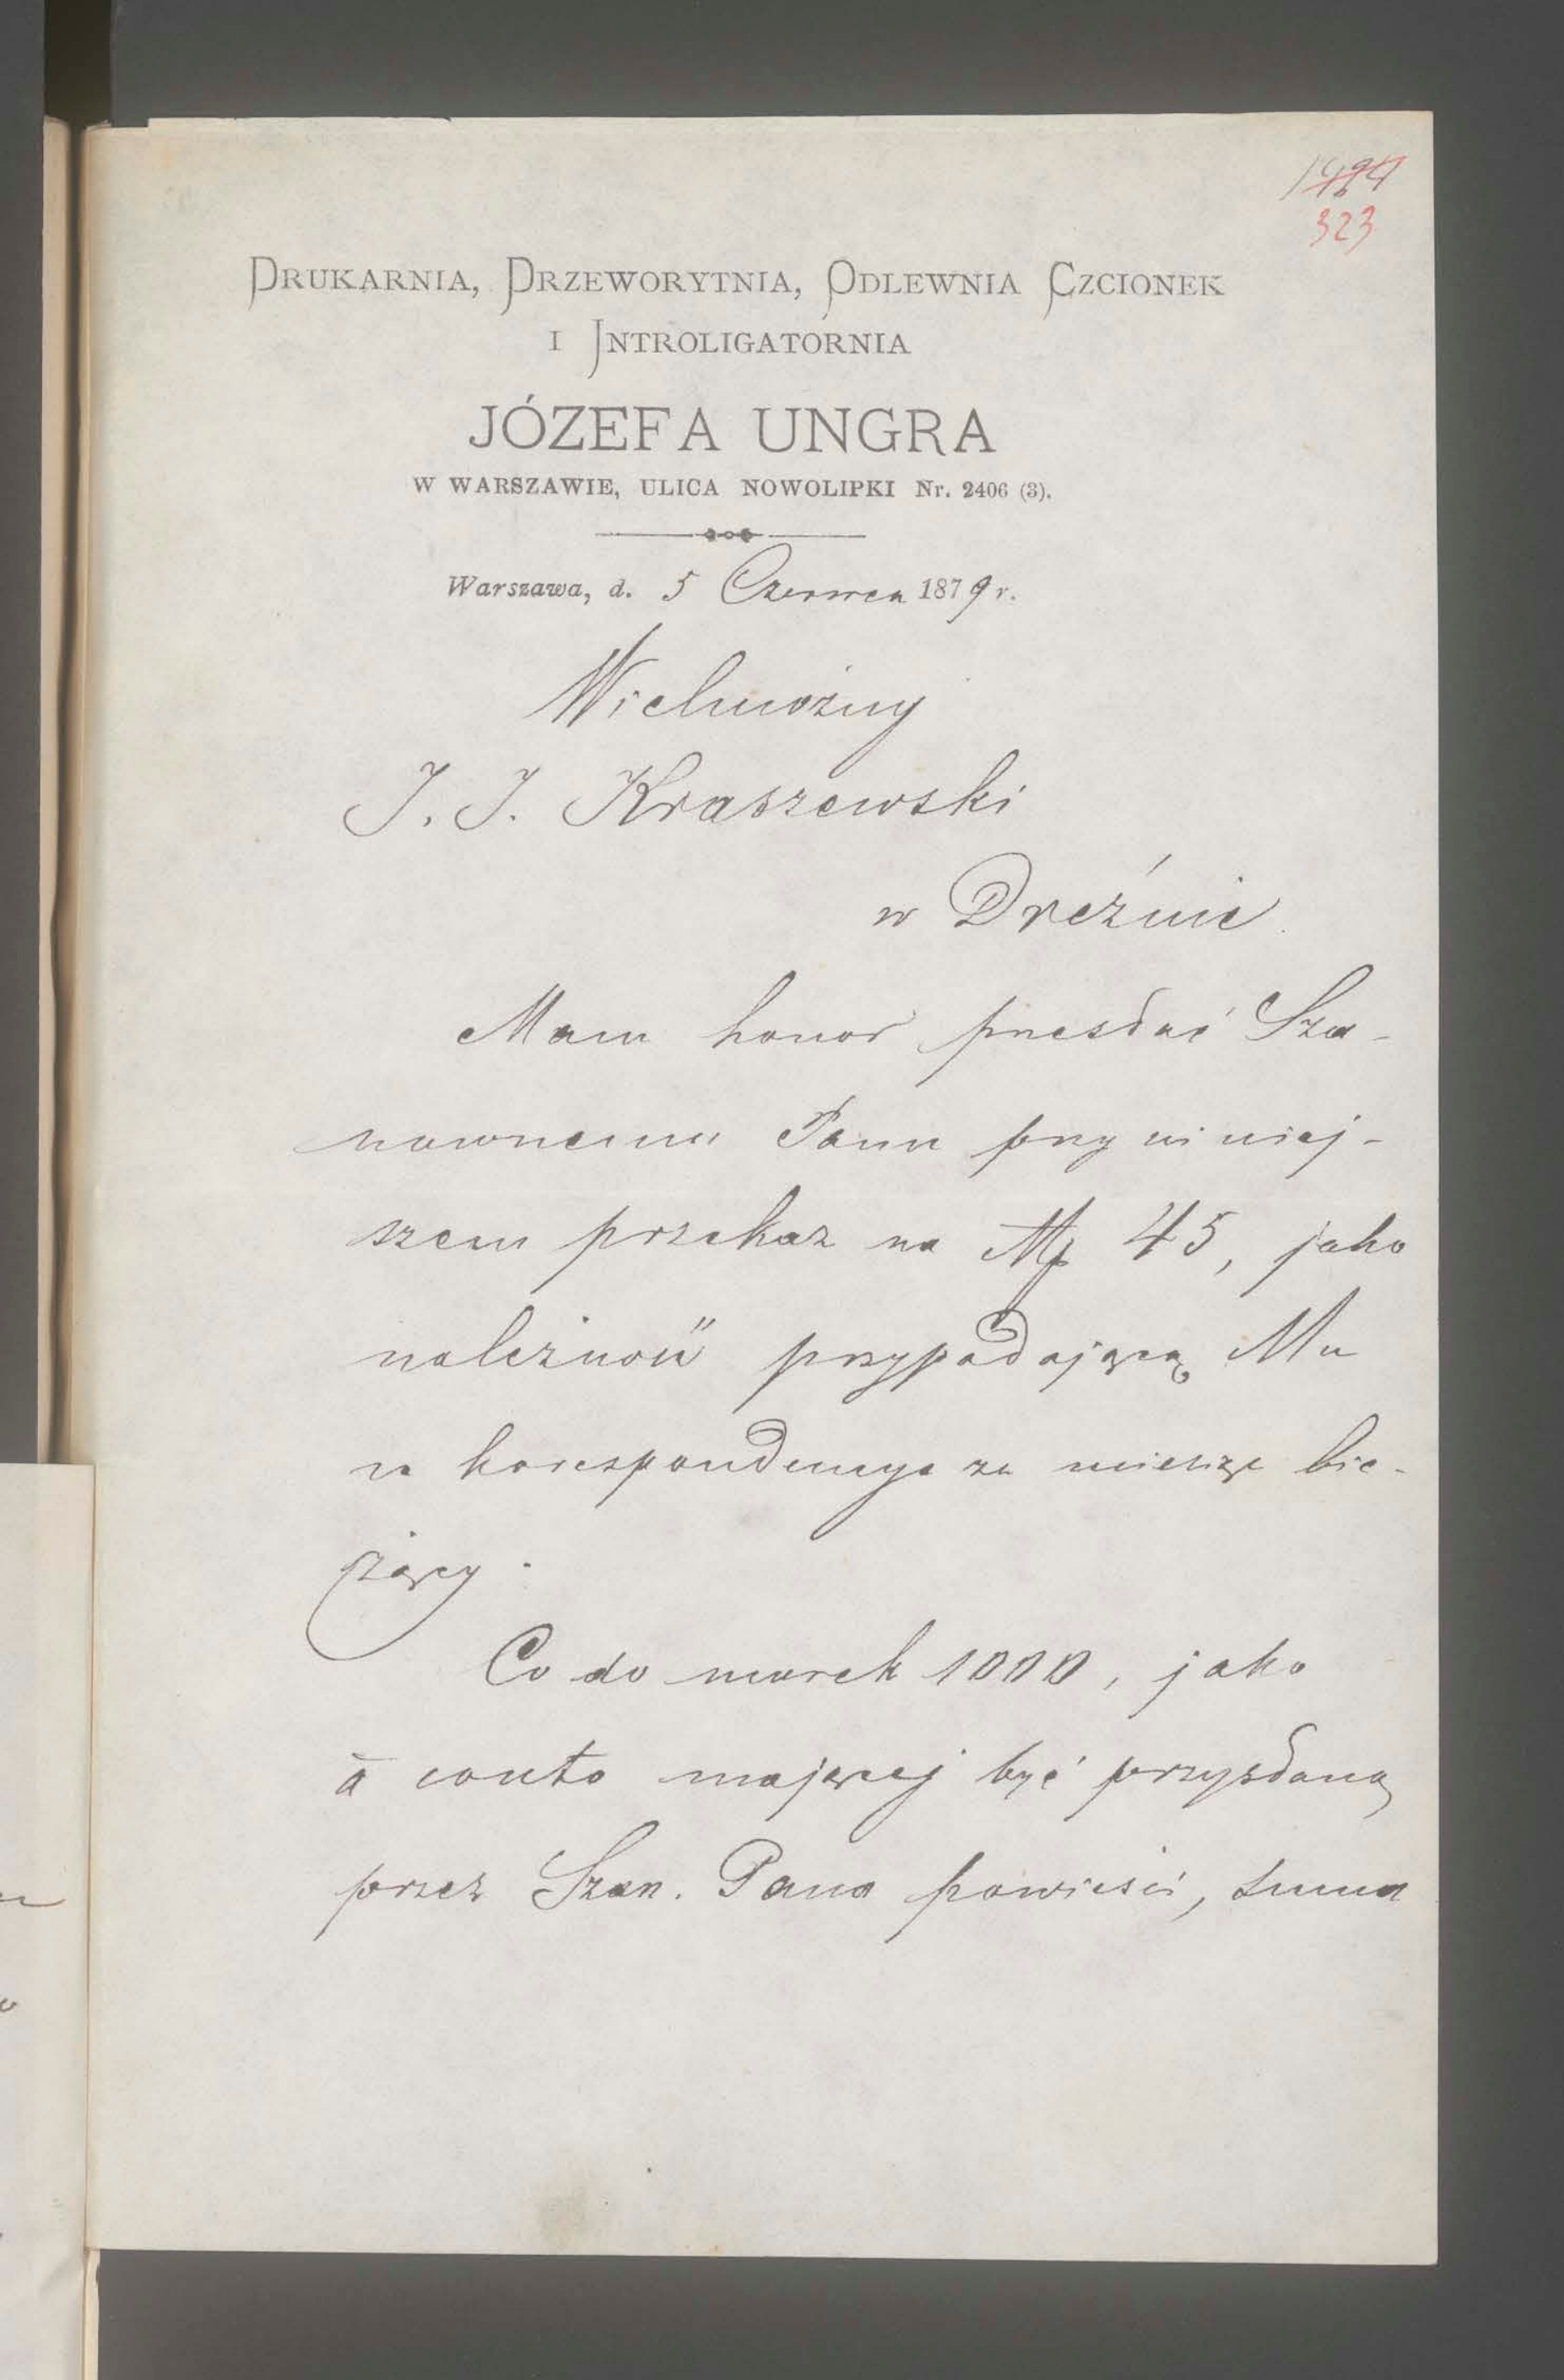 323
DRUKARNIA, DRZEWORYTNIA, ODLEWNIA CZCIONEK
I INTROLIGATORNIA
JÓZEFA UNGRA
W WARSZAWIE, ULICA NOWOLIPKI Nr. 2406 (3).
Warszawa, d. 5 Czerwca 1879 r.
Wielmożny
J. J. Kraszewski
w Dreźnie.
Mam honor przesłać Sza-
nownemu Panu przy niniej-
szem przekaz na Mk 45, jako
należność przypadającą Mu
za korespondencye za miesiąc bie-
żący.
Co do marek 1000, jako
à conto mającej być przysłaną
przez Szan. Pana powieści, suma